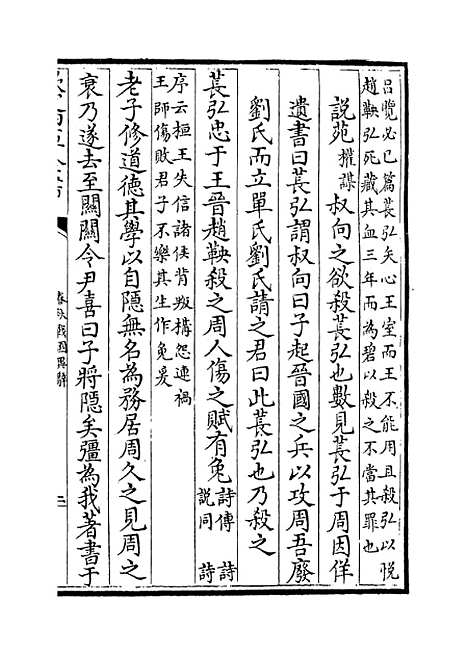 呂覽必已篇萇弘矢心王室而王不能用且殺弘以悅
趙鞅弘死藏其血三年而為碧以殺之不當其罪也
說苑權謀叔向之欲殺萇弘也數見萇弘于周因佯
遺書曰萇弘謂叔向曰子起晉國之兵以攻周吾廢
劉氏而立單氏劉氏請之君曰此萇弘也乃殺之
萇弘忠于王晉趙鞅殺之周人傷之賦有兔詩傳詩
說同
序云桓王失信諸侯背叛構怨連禍
王師傷敗君子不樂其生作兔爰
老子修道德其學以自隱無名為務居周久之見周之
衰乃遂去至關關令尹喜曰子將隱矣彊為我著書于
春秋戰國異辭
二